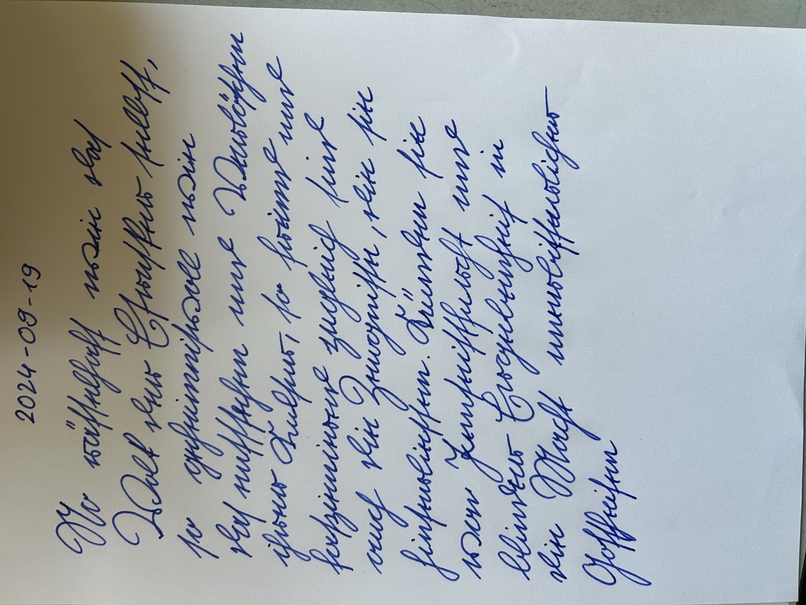 2024-09-19
So rätselhaft wie das
Volk der Etrusker selbst,
so geheimnisvoll wie
das entstehen und Verlöschen
ihrer Kultur, so fremd und
faszinierend zugleich sind
auch die Zeugnisse, die sie
hinterließen. Künden sie
von Jenseitsfurcht und
blinder Ergebenheit in
die Macht unerbittlicher
Gottheiten